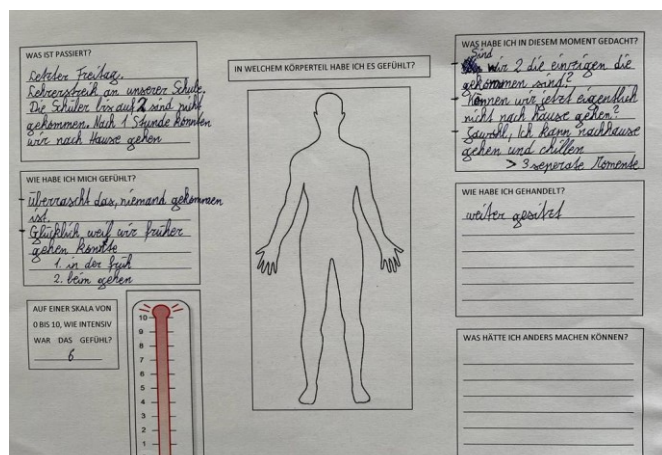 WAS IST PASSIERT?
Letzter Freitag.
Lehrerstreik an unserer Schule.
Die Schüler bis auf 2 sind nicht
gekommen. Nach 1 Stunde konnten
wir nach Hause gehen
WIE HABE ICH MICH GEFÜHLT?
- überrascht das, niemand gekommen
ist.
- Glücklich weil wir früher
gehen konnte
1. in der früh
2. beim gehen
AUF EINER SKALA VON
0 BIS 10, WIE INTENSIV
WAR DAS GEFÜHL?
6
10
9
8
7
6
5
4
3
2
1
IN WELCHEM KÖRPERTEIL HABE ICH ES GEFÜHLT?
WAS HABE ICH IN DIESEM MOMENT GEDACHT?
Sind
- wir 2 die einzigen die
gekommen sind?
- Können wir jetzt eigentlich
nicht nach hause gehen?
- Jawohl, Ich kann nachhause
gehen und chillen
> 3 seperate Momente
WIE HABE ICH GEHANDELT?
weiter gesitzt
WAS HÄTTE ICH ANDERS MACHEN KÖNNEN?